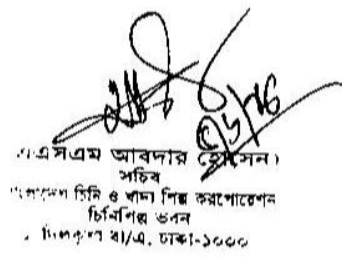 এএসএম আবদার হোসেন)
সচিব
চিনি ও খাদ্য শিল্প করপোরেশন
চিনিশিল্প ভবন
বা/এ, ঢাকা-১০০০